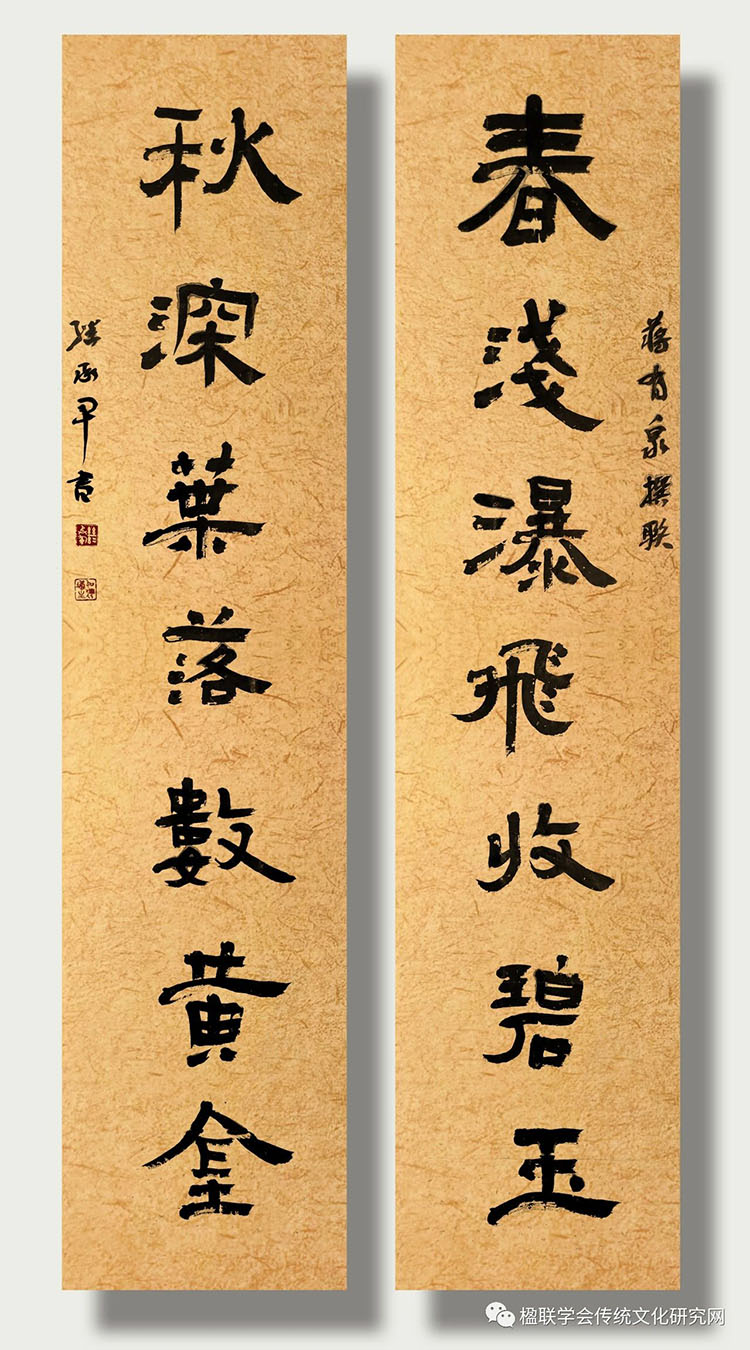 蒋有泉撰联
春淺瀑飛收碧玉
秋深葉落數黄金
楹联学会传统文化研究网